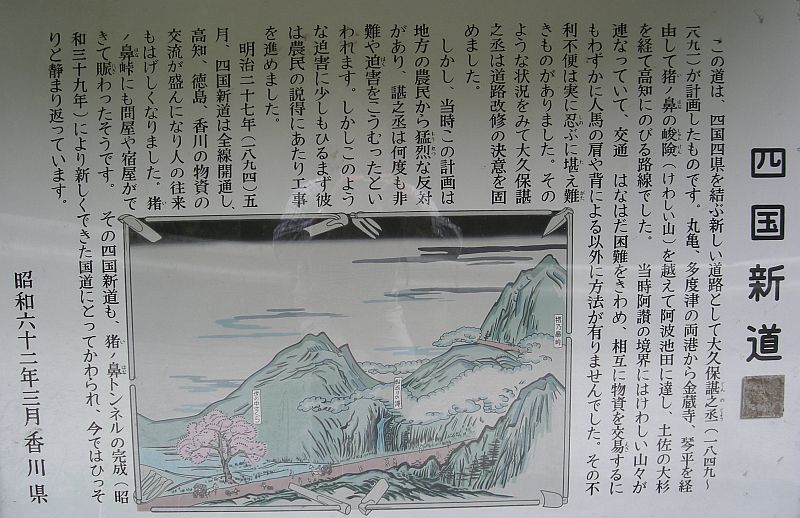 四国新道
この道は、四国四県を結ぶ新しい道路として大久保諶之丞（一八四九〜
一八九一）が計画したものです。丸亀、多度津の両港から金蔵寺、琴平を経
由して猪ノ鼻の峻険（けわしい山）を越えて阿波池田に達し、土佐の大杉
を経て高知にのびる路線でした。　当時阿讃の境界にはけわしい山々が
連なっていて、交通　はなはだ困難をきわめ、相互に物資を交易するに
もわずかに人馬の肩や背による以外に方法が有りませんでした。その不
利不便は実に忍ぶに堪え難
きものがありました。その
ような状況をみて大久保諶
之丞は道路改修の決意を固
めました。
しかし、当時この計画は
地方の農民から猛烈な反対
があり、諶之丞は何度も非
難や迫害をこうむったとい
われます。しかしこのよう
な迫害に少しもひるまず彼
は農民の説得にあたり工事
を進めました。
明治二十七年（一八九四）五
月、四国新道は全線開通し、
高知、徳島、香川の物資の
交流が盛んになり人の往来
もはげしくなりました。猪
ノ鼻峠にも問屋や宿屋がで
きて賑わったそうです。　その四国新道も、猪ノ鼻トンネルの完成（昭
和三十九年）により新しくできた国道にとってかわられ、今ではひっそ
りと静まり返っています。
昭和六十二年三月　香川県